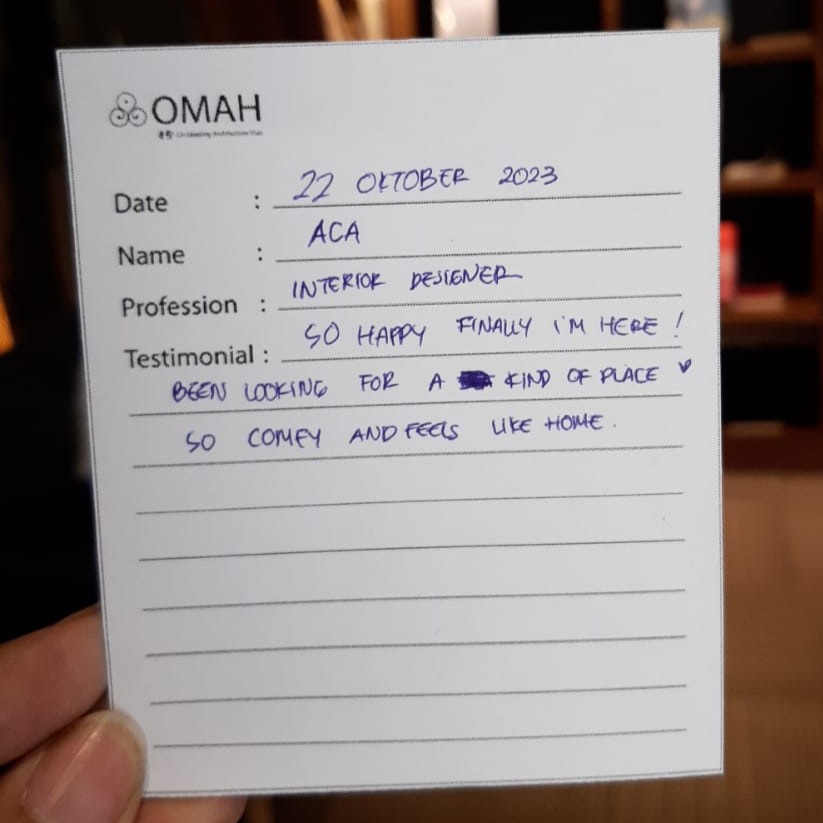 OMAH
Date : 22 OKTOBER 2023
Name : ACA
Profession : INTERIOR DESIGNER
Testimonial : SO HAPPY FINALLY I'M HERE !
BEEN LOOKING FOR A KIND OF PLACE ♥
SO COMFY AND FEELS LIKE HOME.